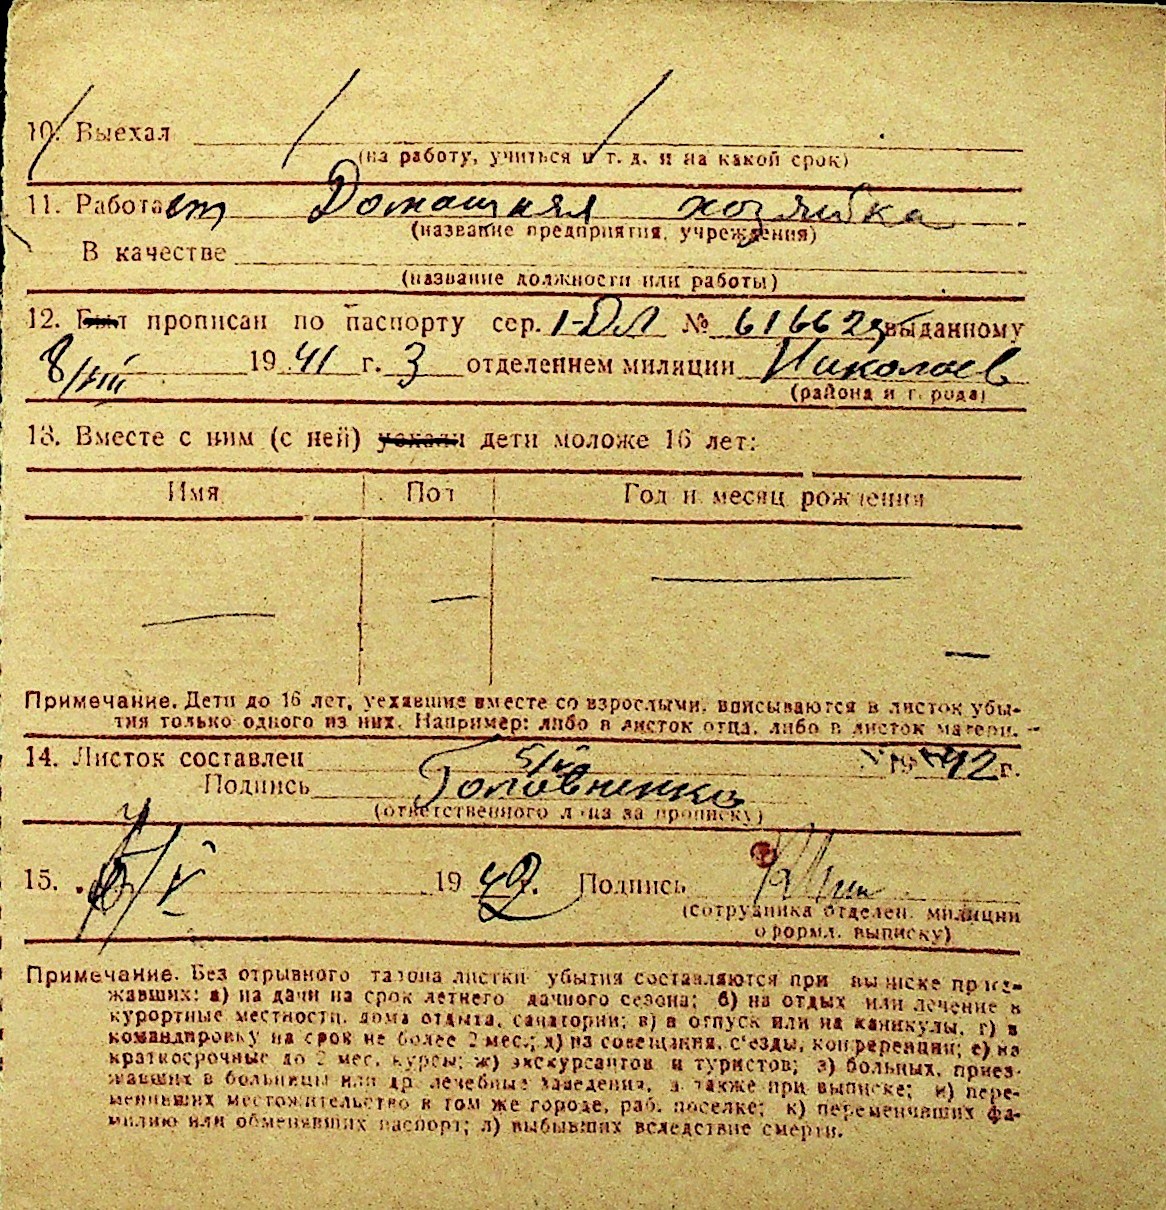 10. Выехал
(на работу, учиться и т. д. и на какой срок)
11. Работает Домашняя хозяйка
(название предприятия, учреждения)
В качестве
(название должности или работы)
12. Был прописан по паспорту сер. 1-ДЛ № 616629 выданному
8/VIII 1941 г. 3 отделением милиции Николаев
(района и города)
13. Вместе с ним (с ней) уехали дети моложе 16 лет:
Имя Пол Год и месяц рождения
Примечание. Дети до 16 лет, уехавшие вместе со взрослыми, вписываются в листок убы-
тия только одного из них. Например: либо в листок отца, либо в листок матери.
14. Листок составлен 5/V 1942 г.
Подпись Головненко
(ответственного лица за прописку)
15. 5/V 1942. Подпись
(сотрудника отделен. милиции
оформл. выписку)
Примечание. Без отрывного талона листки убытия составляются при выписке приез-
жавших: а) на дачи на срок летнего дачного сезона; б) на отдых или лечение в
курортные местности, дома отдыха, санатории; в) в отпуск или на каникулы, г) в
командировку на срок не более 2 мес.; д) на совещания, съезды, конференции; е) на
краткосрочные до 2 мес. курсы; ж) экскурсантов и туристов; з) больных, приез-
жавших в больницы или др. лечебные заведения, а также при выписке; и) пере-
менивших местожительство в том же городе, раб. поселке; к) переменивших фа-
милию или обменявших паспорт; л) выбывших вследствие смерти.